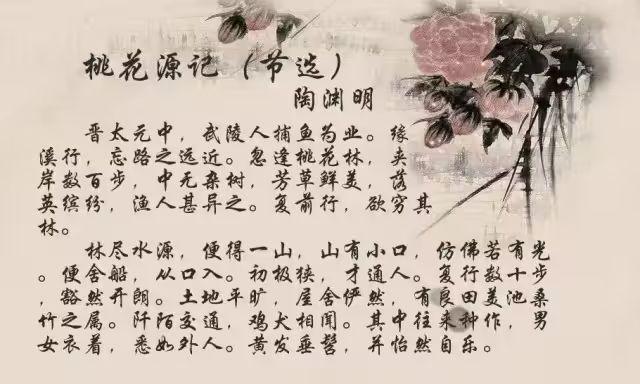 桃花源记（节选）
陶渊明
晋太元中，武陵人捕鱼为业。缘
溪行，忘路之远近。忽逢桃花林，夹
岸数百步，中无杂树，芳草鲜美，落
英缤纷，渔人甚异之。复前行，欲穷其
林。
林尽水源，便得一山，山有小口，仿佛若有光
。便舍船，从口入。初极狭，才通人。复行数十步
，豁然开朗。土地平旷，屋舍俨然，有良田美池桑
竹之属。阡陌交通，鸡犬相闻。其中往来种作，男
女衣着，悉如外人。黄发垂髫，并怡然自乐。